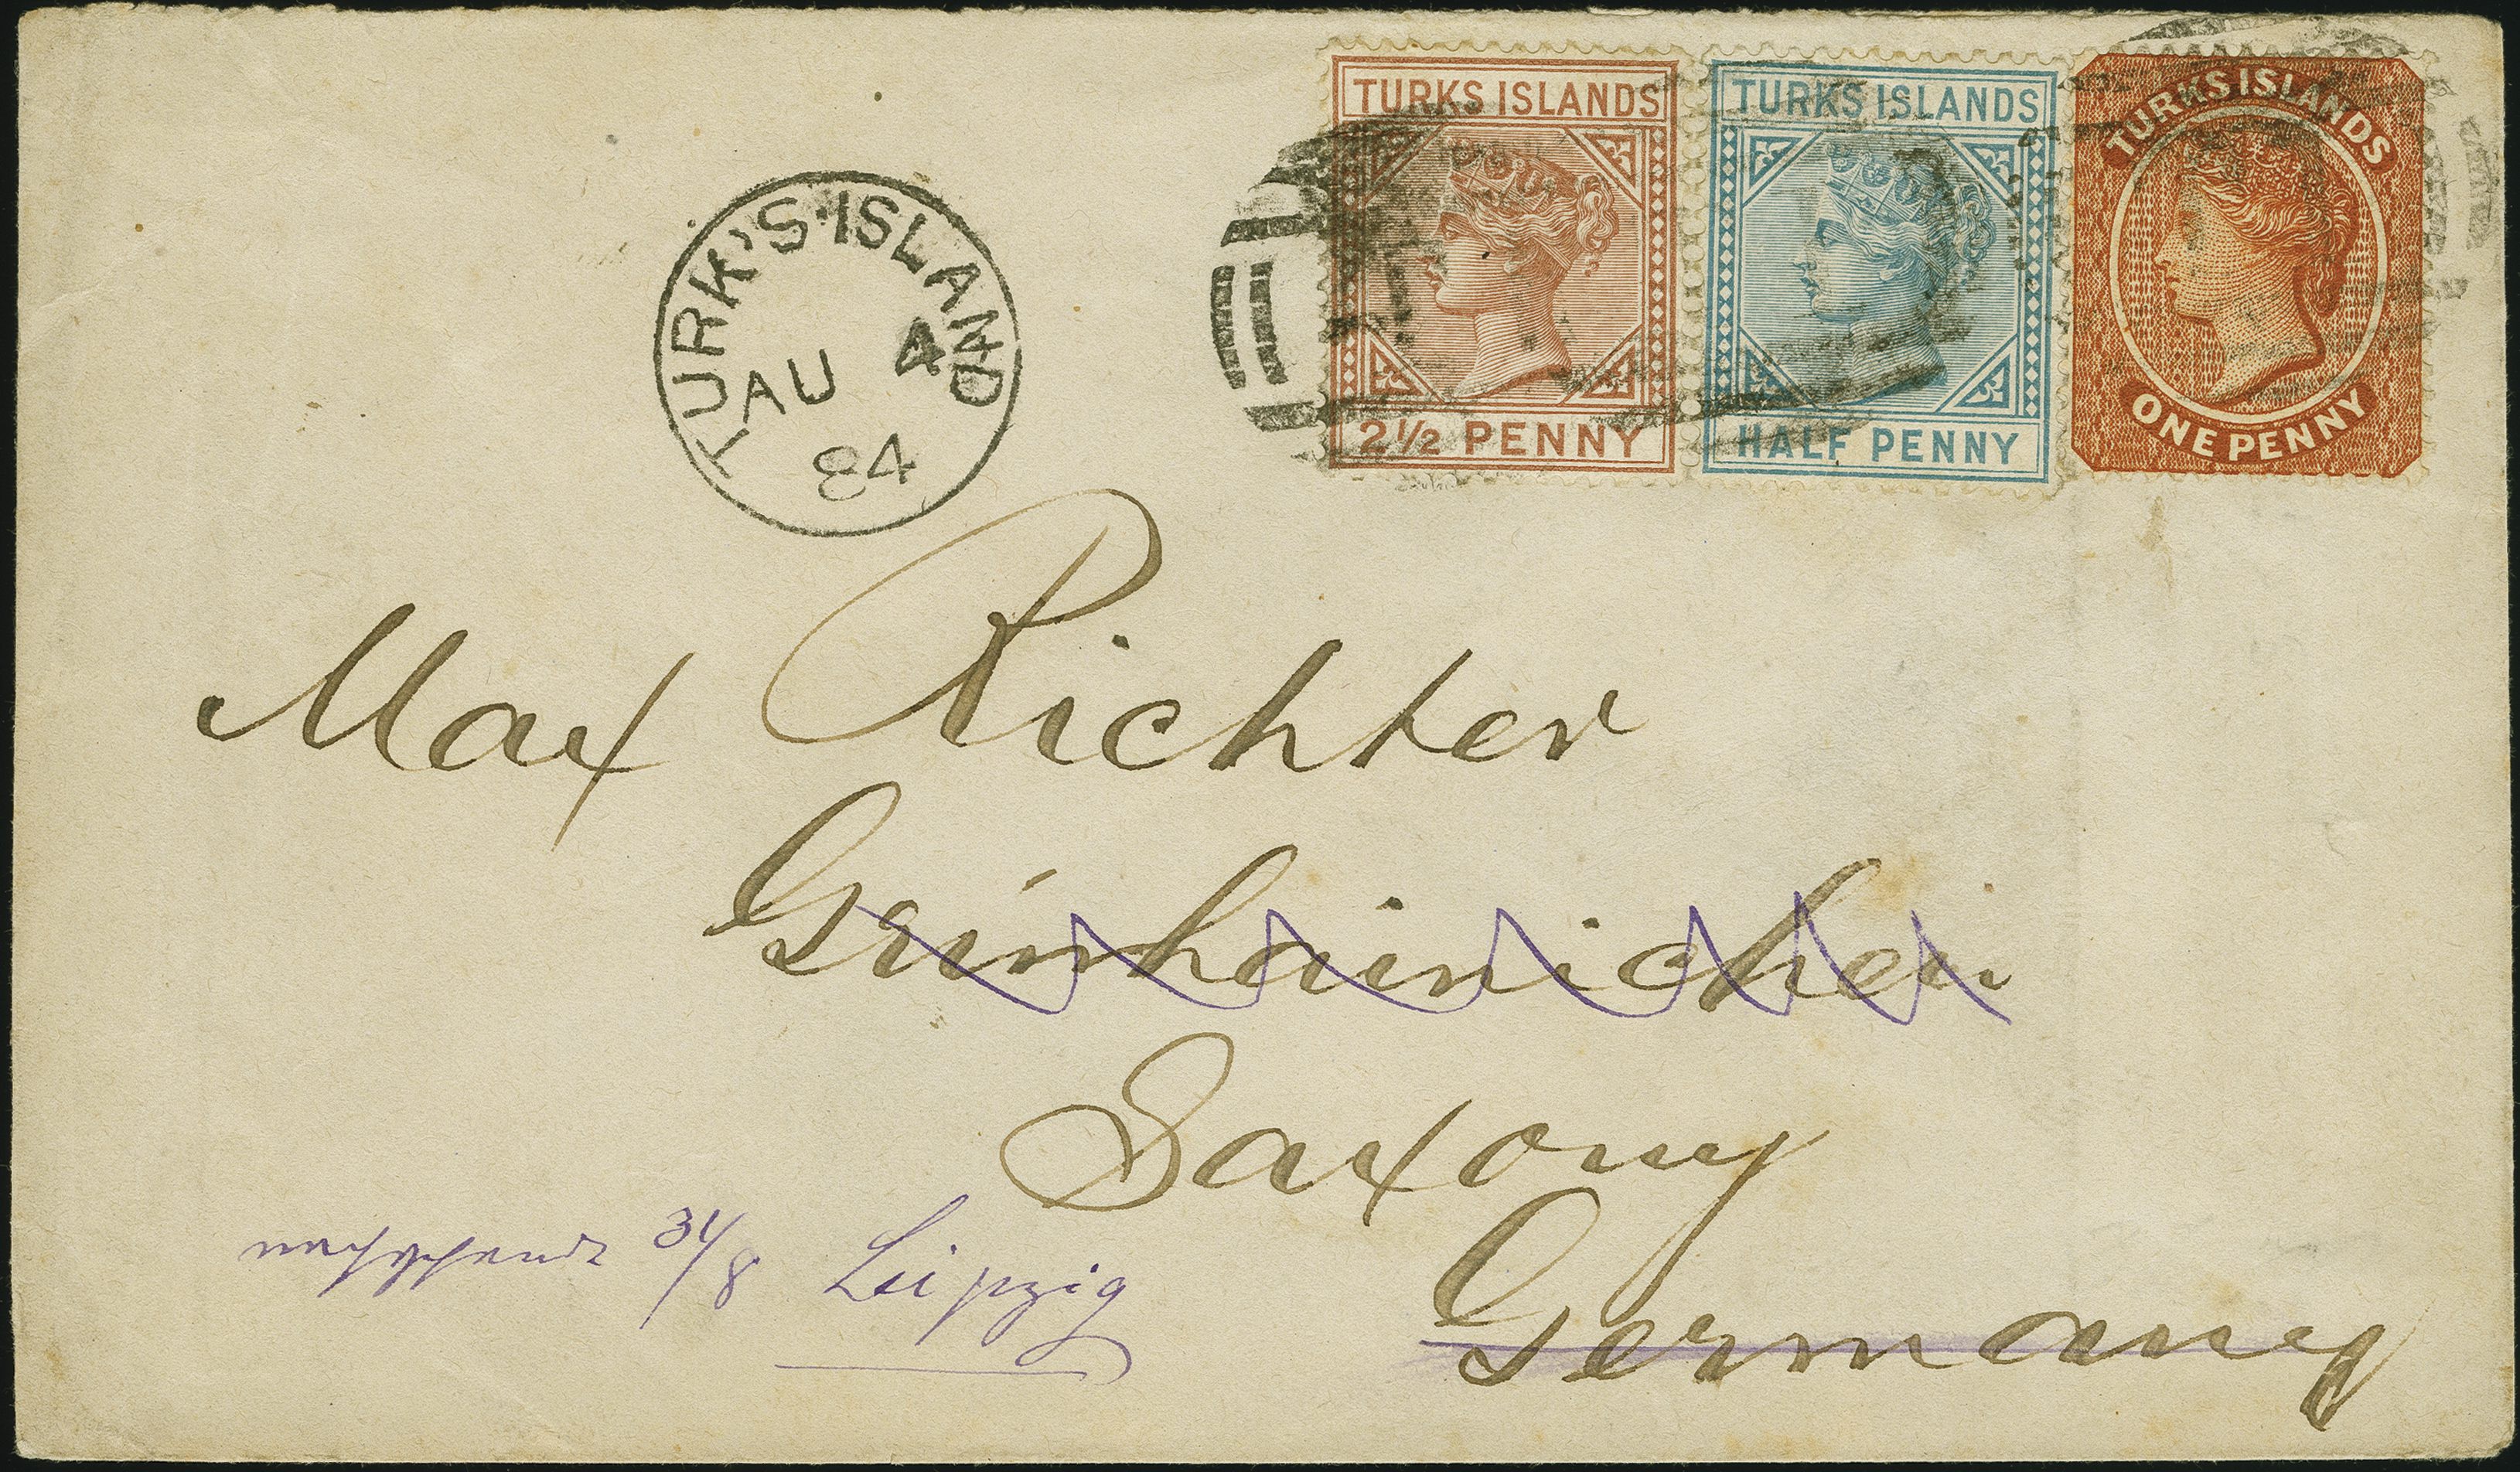 TURKS ISLANDS
2½ PENNY
TURKS ISLANDS
HALF PENNY
TURKS ISLANDS
ONE PENNY
TURK'S·ISLAND
AU 4
84
Max Richter
Grünhainichen
Saxony
Germany
31/8 Leipzig